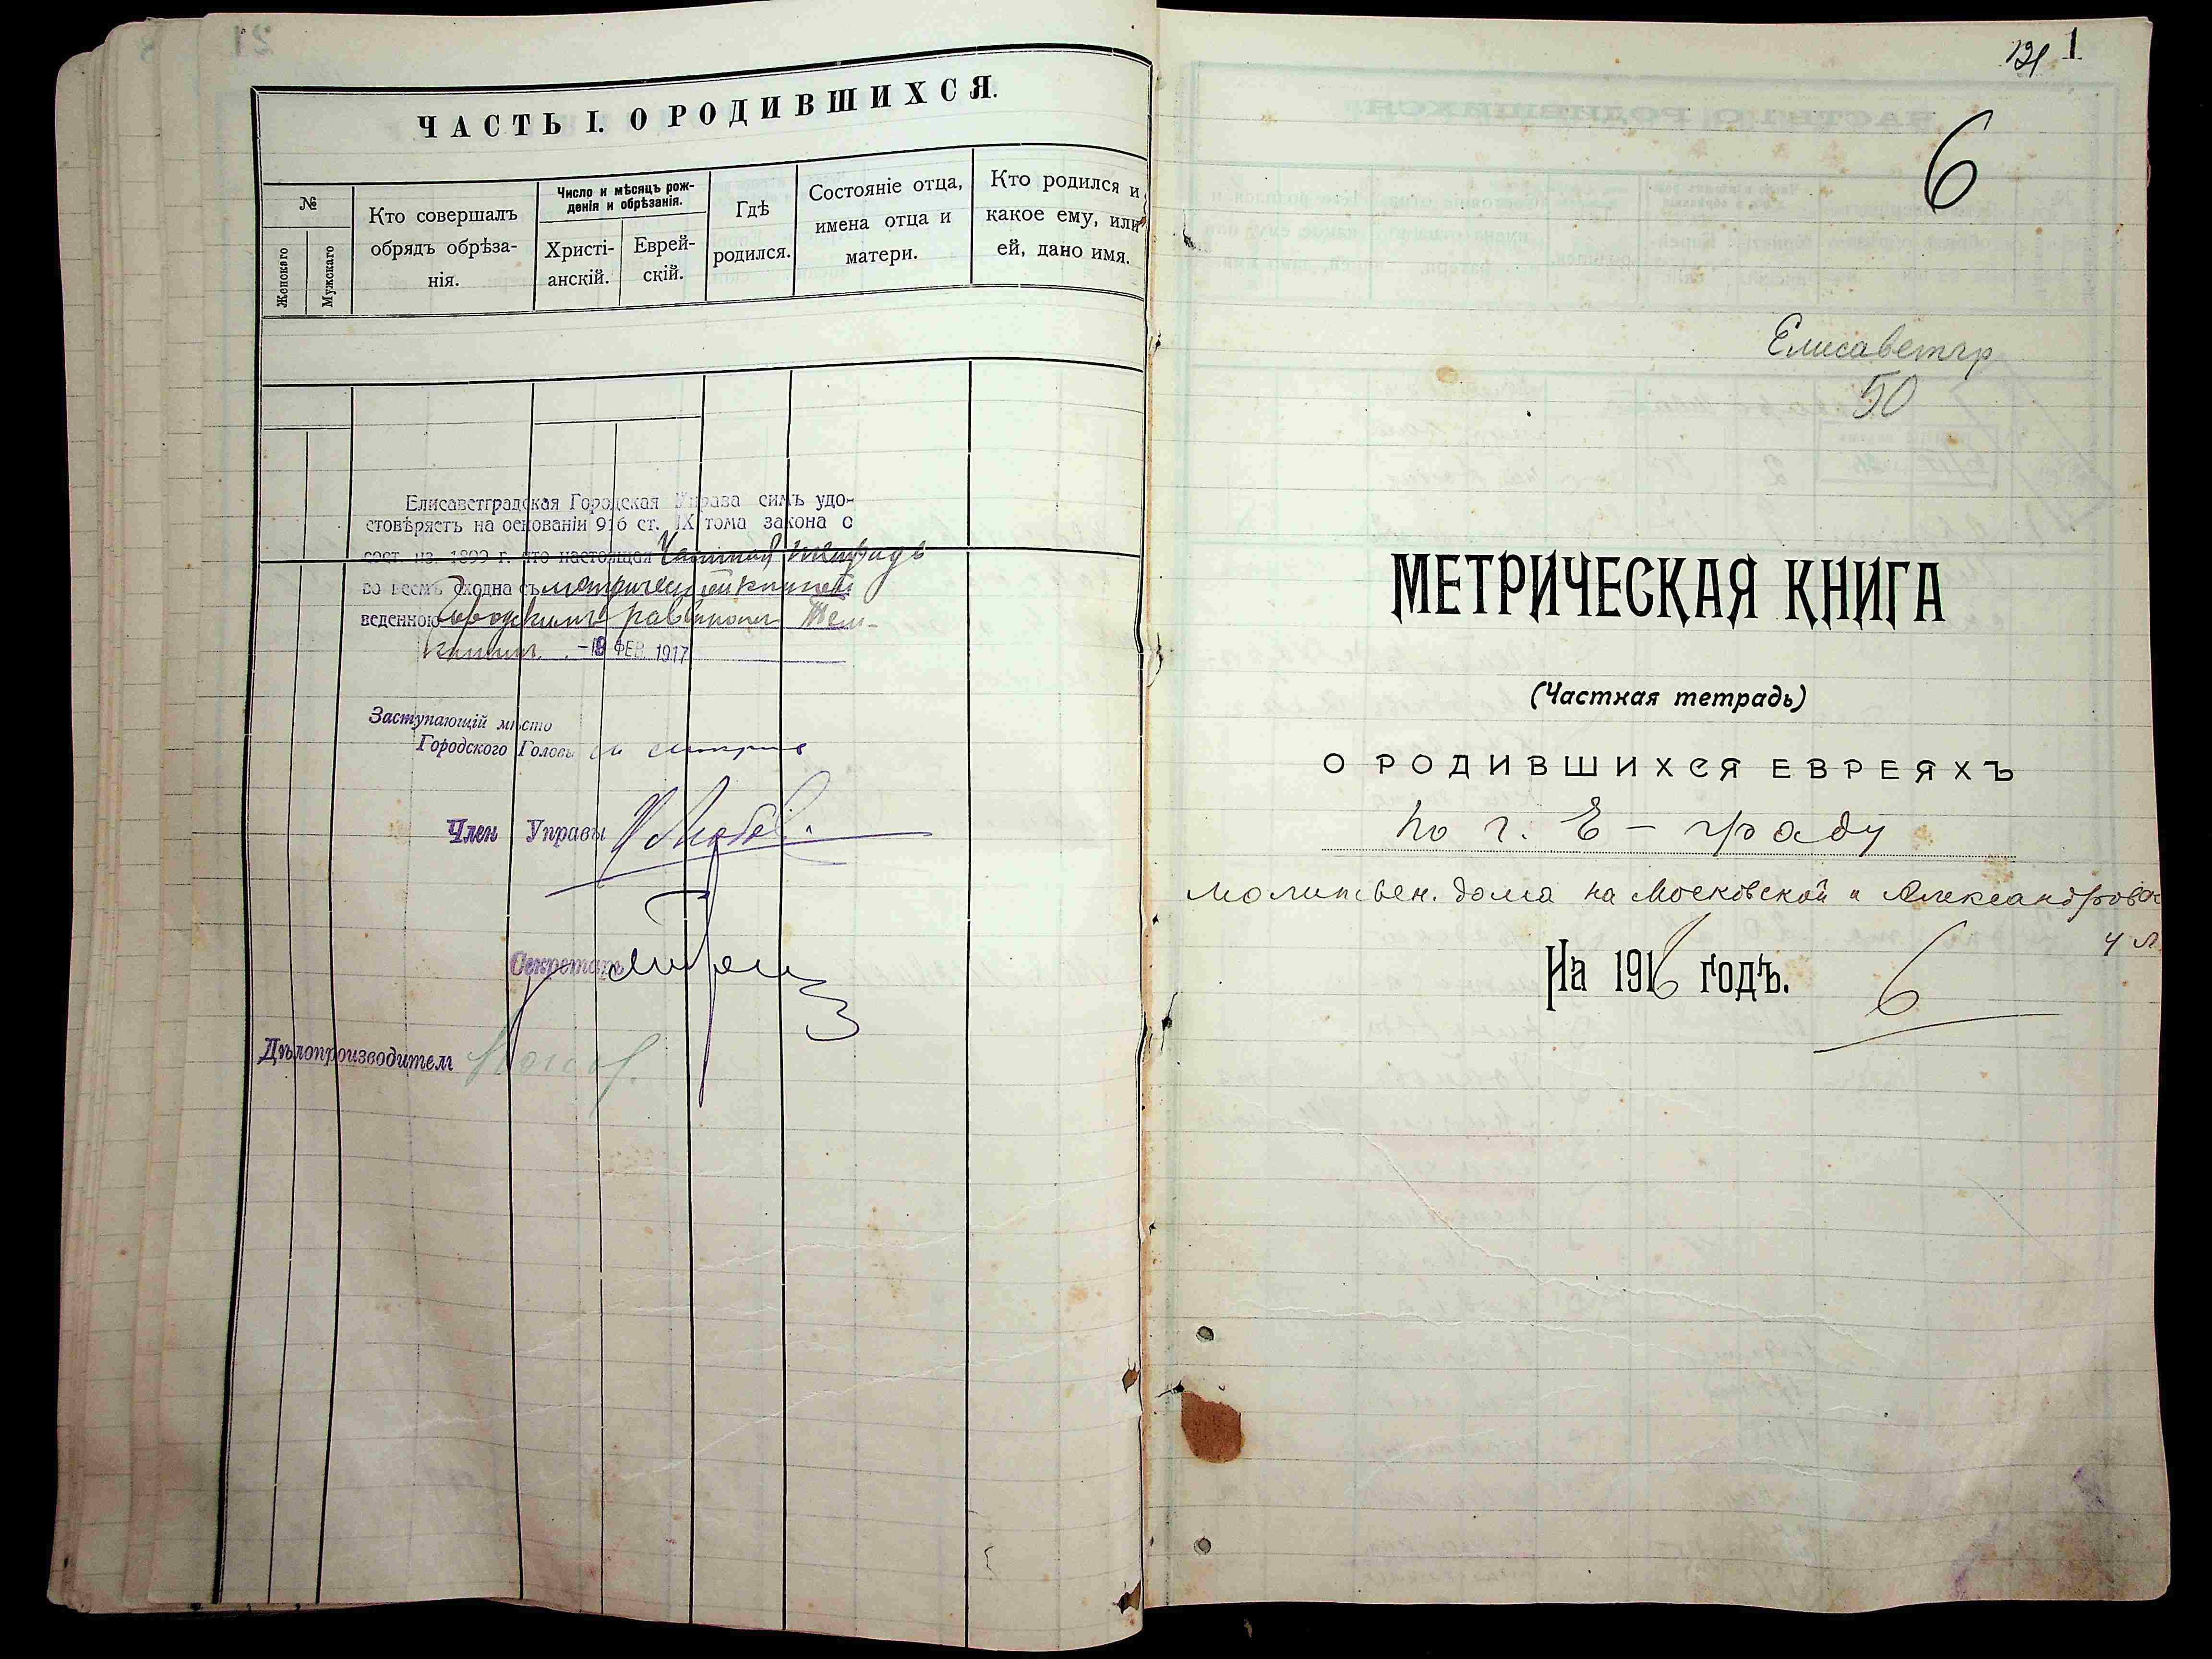 ЧАСТЬ I. О РОДИВШИХСЯ.
№
Женскаго
Мужскаго
Кто совершалъ
обрядъ обрѣза-
нія.
Число и мѣсяцъ рож-
денія и обрѣзанія.
Христі-
анскій.
Еврей-
скій.
Гдѣ
родился.
Состояніе отца,
имена отца и
матери.
Кто родился и
какое ему, или
ей, дано имя.
Елисаветградская Городская Управа симъ удо-
стовѣряетъ на основаніи 916 ст. IX тома закона о
сост. из. 1899 г. что настоящая Частная тетрадь
во всемъ сходна съ метрической книгой
веденною Городскимъ раввиномъ Тем-
кинымъ. -19 ФЕВ. 1917
Заступающій мѣсто
Городского Головы
Член Управы
Секретарь
Дѣлопроизводитель
121 1
6
Елисаветгр
50
МЕТРИЧЕСКАЯ КНИГА
(Частная тетрадь)
О РОДИВШИХСЯ ЕВРЕЯХЪ
по г. Е-граду
молитвен. дома на Московской и Александровск
ул
На 1916 годъ. 6